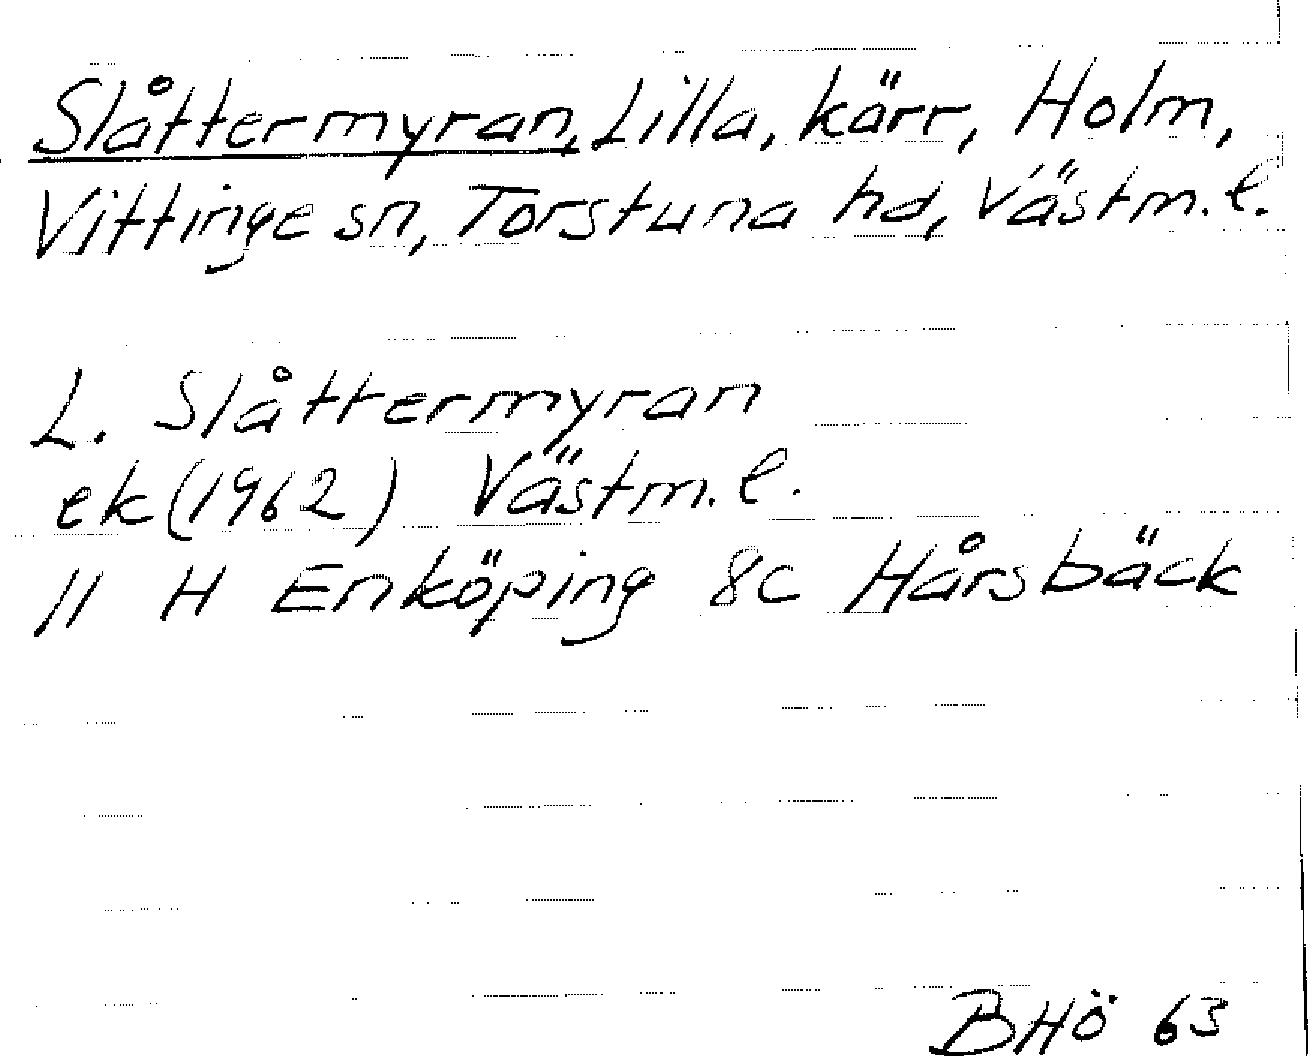 Slåttermyran, Lilla, kärr, Holm,
Vittinge sn, Torstuna hd, Västm. l.
L. Slåttermyran
ek (1962) Västm. l.
11 H Enköping 8c Hårsbäck
BHÖ 63